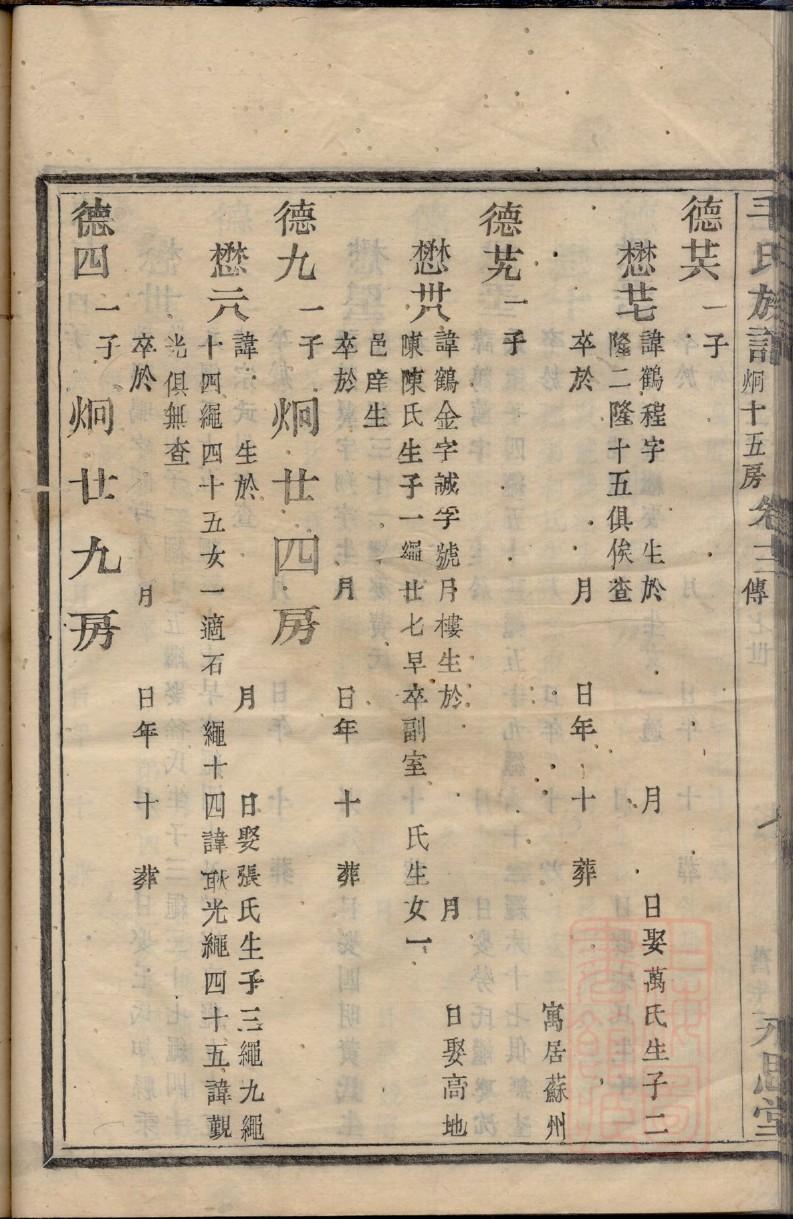 王氏族譜 炯十五房 卷十三 傳
永思堂
德 一子
懋 諱鶴程字 生於 月 日娶萬氏生子二
隆二隆十五俱俟查
卒於 月 日年 十 葬 寓居蘇州
德 一子
懋 諱鶴金字誠孚號月樓生於 月 日娶高地
陳陳氏生子一繩廿七早卒副室 氏生女一
邑庠生
卒於 月 日年 十 葬
德九 一子 炯廿四房
懋 諱 生於 月 日娶張氏生子三繩九繩
十四繩四十五女一適石 繩十四諱耿光繩四十五諱觀
光俱無查
卒於 月 日年 十 葬
德四 一子 炯廿九房